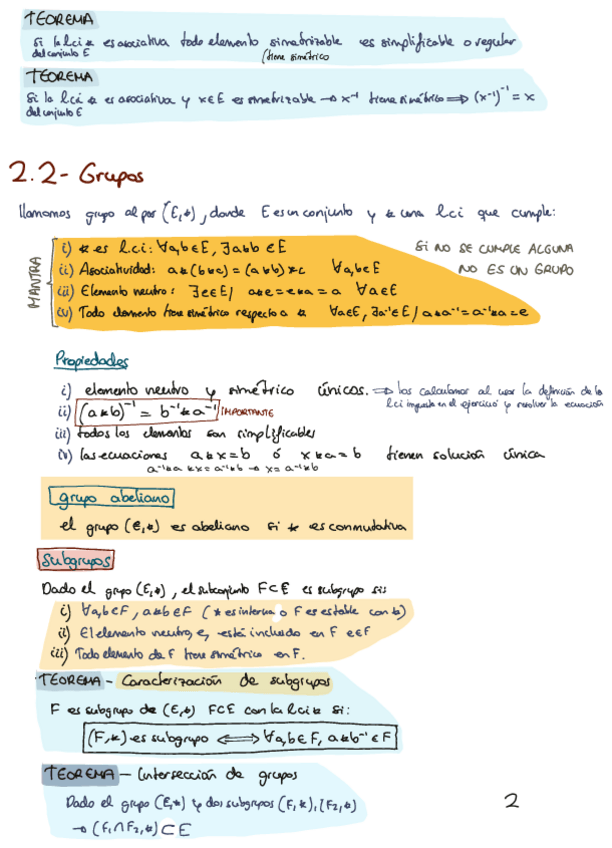 TEOREMA
Si la lci * es asociativa todo elemento simetrizable es simplificable o regular
del conjunto E (tiene simétrico
TEOREMA
Si la lci * es asociativa y x∈E es simetrizable → x⁻¹ tiene simétrico ⟹ (x⁻¹)⁻¹ = x
del conjunto E
2.2- Grupos
llamamos grupo al par (E,*), donde E es un conjunto y * una lci que cumple:
MANTRA
i) * es lci: ∀a,b∈E, ∃a*b∈E
SI NO SE CUMPLE ALGUNA
ii) Asociatividad: a*(b*c) = (a*b)*c ∀a,b∈E
NO ES UN GRUPO
iii) Elemento neutro: ∃e∈E/ a*e=e*a=a ∀a∈E
iv) Todo elemento tiene simétrico respecto a * ∀a∈E, ∃a⁻¹∈E/ a*a⁻¹=a⁻¹*a=e
Propiedades
i) elemento neutro y simétrico únicos. ⟹ los calculamos al usar la definición de la
lci impuesta en el ejercicio y resolver la ecuación
ii) (a*b)⁻¹ = b⁻¹*a⁻¹ IMPORTANTE
iii) todos los elementos son simplificables
iv) las ecuaciones a*x=b ó x*a=b tienen solución única
a⁻¹*a*x=a⁻¹*b → x=a⁻¹*b
grupo abeliano
el grupo (E,*) es abeliano si * es conmutativa
Subgrupos
Dado el grupo (E,*), el subconjunto F⊂E es subgrupo sis
i) ∀a,b∈F, a*b∈F (* es interna o F es estable con *)
ii) El elemento neutro, e, está incluido en F e∈F
iii) Todo elemento de F tiene simétrico en F.
TEOREMA - Caracterización de subgrupos
F es subgrupo de (E,*) F⊂E con la lci * si:
(F,*) es subgrupo ⟺ ∀a,b∈F, a*b⁻¹∈F
TEOREMA - Intersección de grupos
Dado el grupo (E,*) y dos subgrupos (F₁,*), (F₂,*)
→ (F₁∩F₂,*)⊂E
2